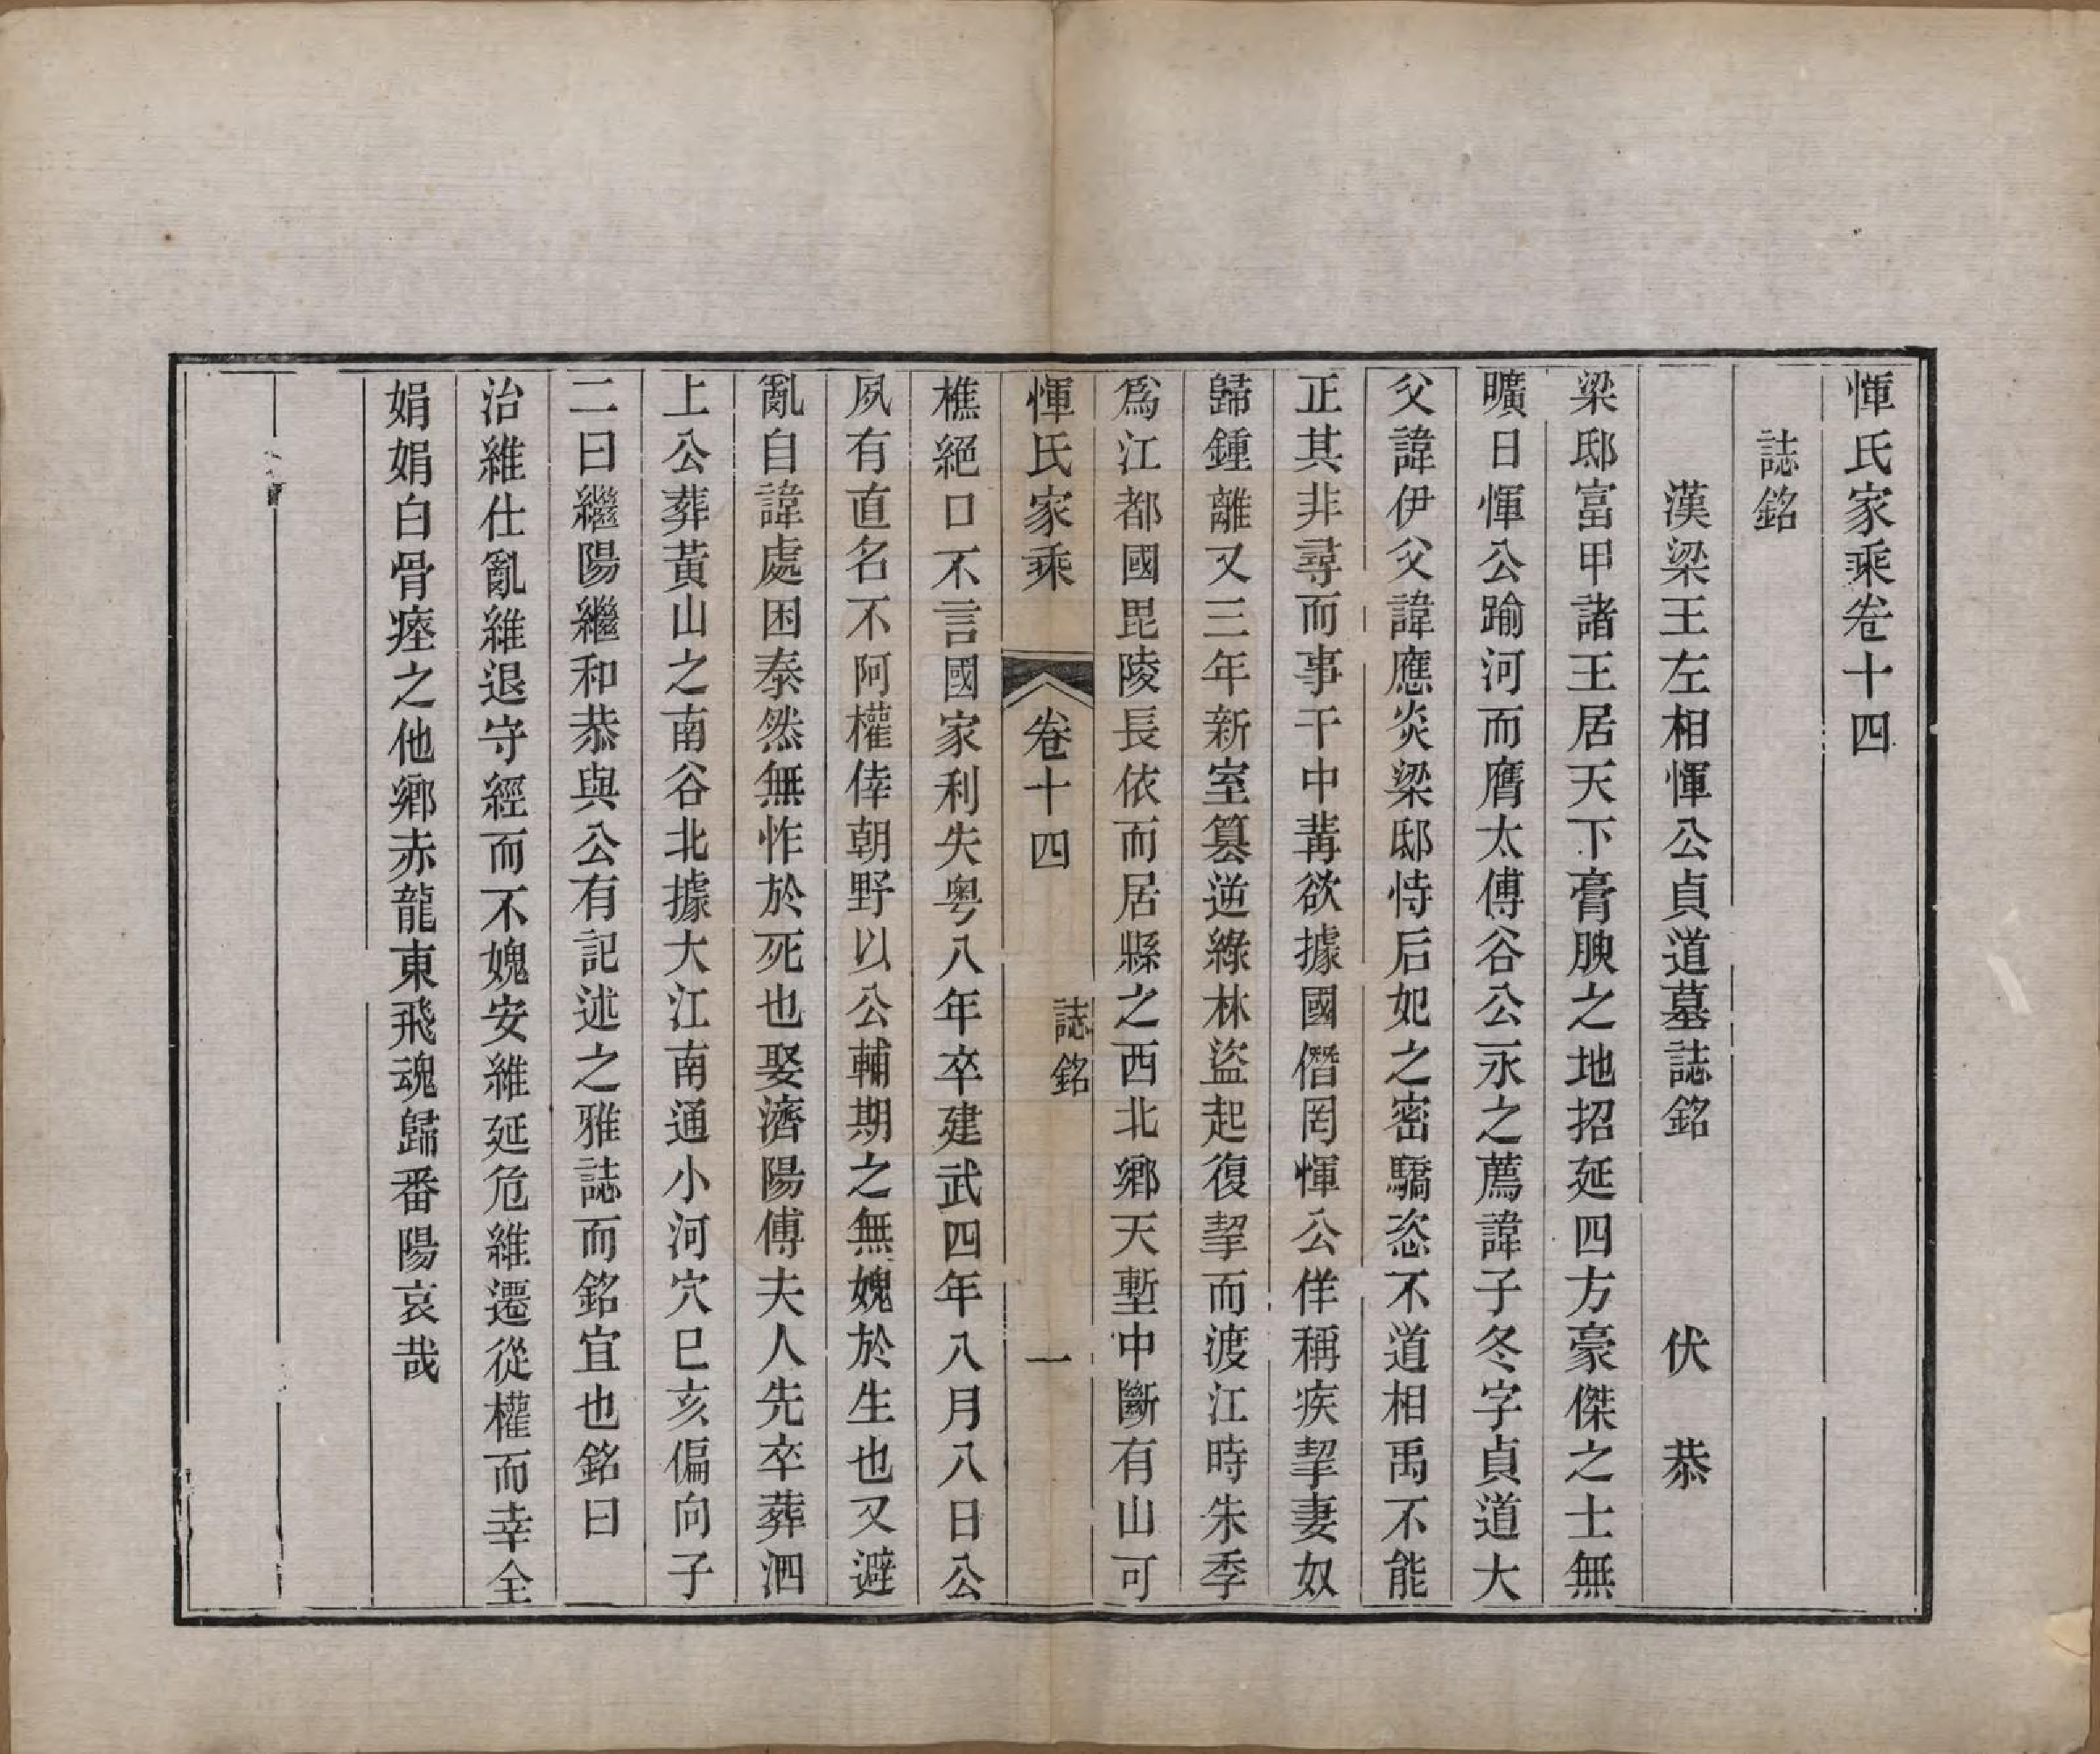 惲氏家乘卷十四
誌銘
漢梁王左相惲公貞道墓誌銘 伏恭
梁邸富甲諸王居天下膏腴之地招延四方豪傑之士無
曠日惲公踰河而膺太傅谷公永之薦諱子冬字貞道大
父諱伊父諱應炎梁邸恃后妃之密驕恣不道相禹不能
正其非尋而事干中冓欲據國僭罔惲公佯稱疾挈妻奴
歸鍾離又三年新室篡逆綠林盜起復挈而渡江時朱季
爲江都國毘陵長依而居縣之西北鄉天塹中斷有山可
惲氏家乘 卷十四 誌銘 一
樵絕口不言國家利失粤八年卒建武四年八月八日公
夙有直名不阿權倖朝野以公輔期之無媿於生也又避
亂自諱處困泰然無怍於死也娶濟陽傅夫人先卒葬泗
上公葬黃山之南谷北據大江南通小河穴巳亥偏向子
二曰繼陽繼和恭與公有記述之雅誌而銘宜也銘曰
治維仕亂維退守經而不媿安維延危維遷從權而幸全
娟娟白骨瘞之他鄉赤龍東飛魂歸番陽哀哉